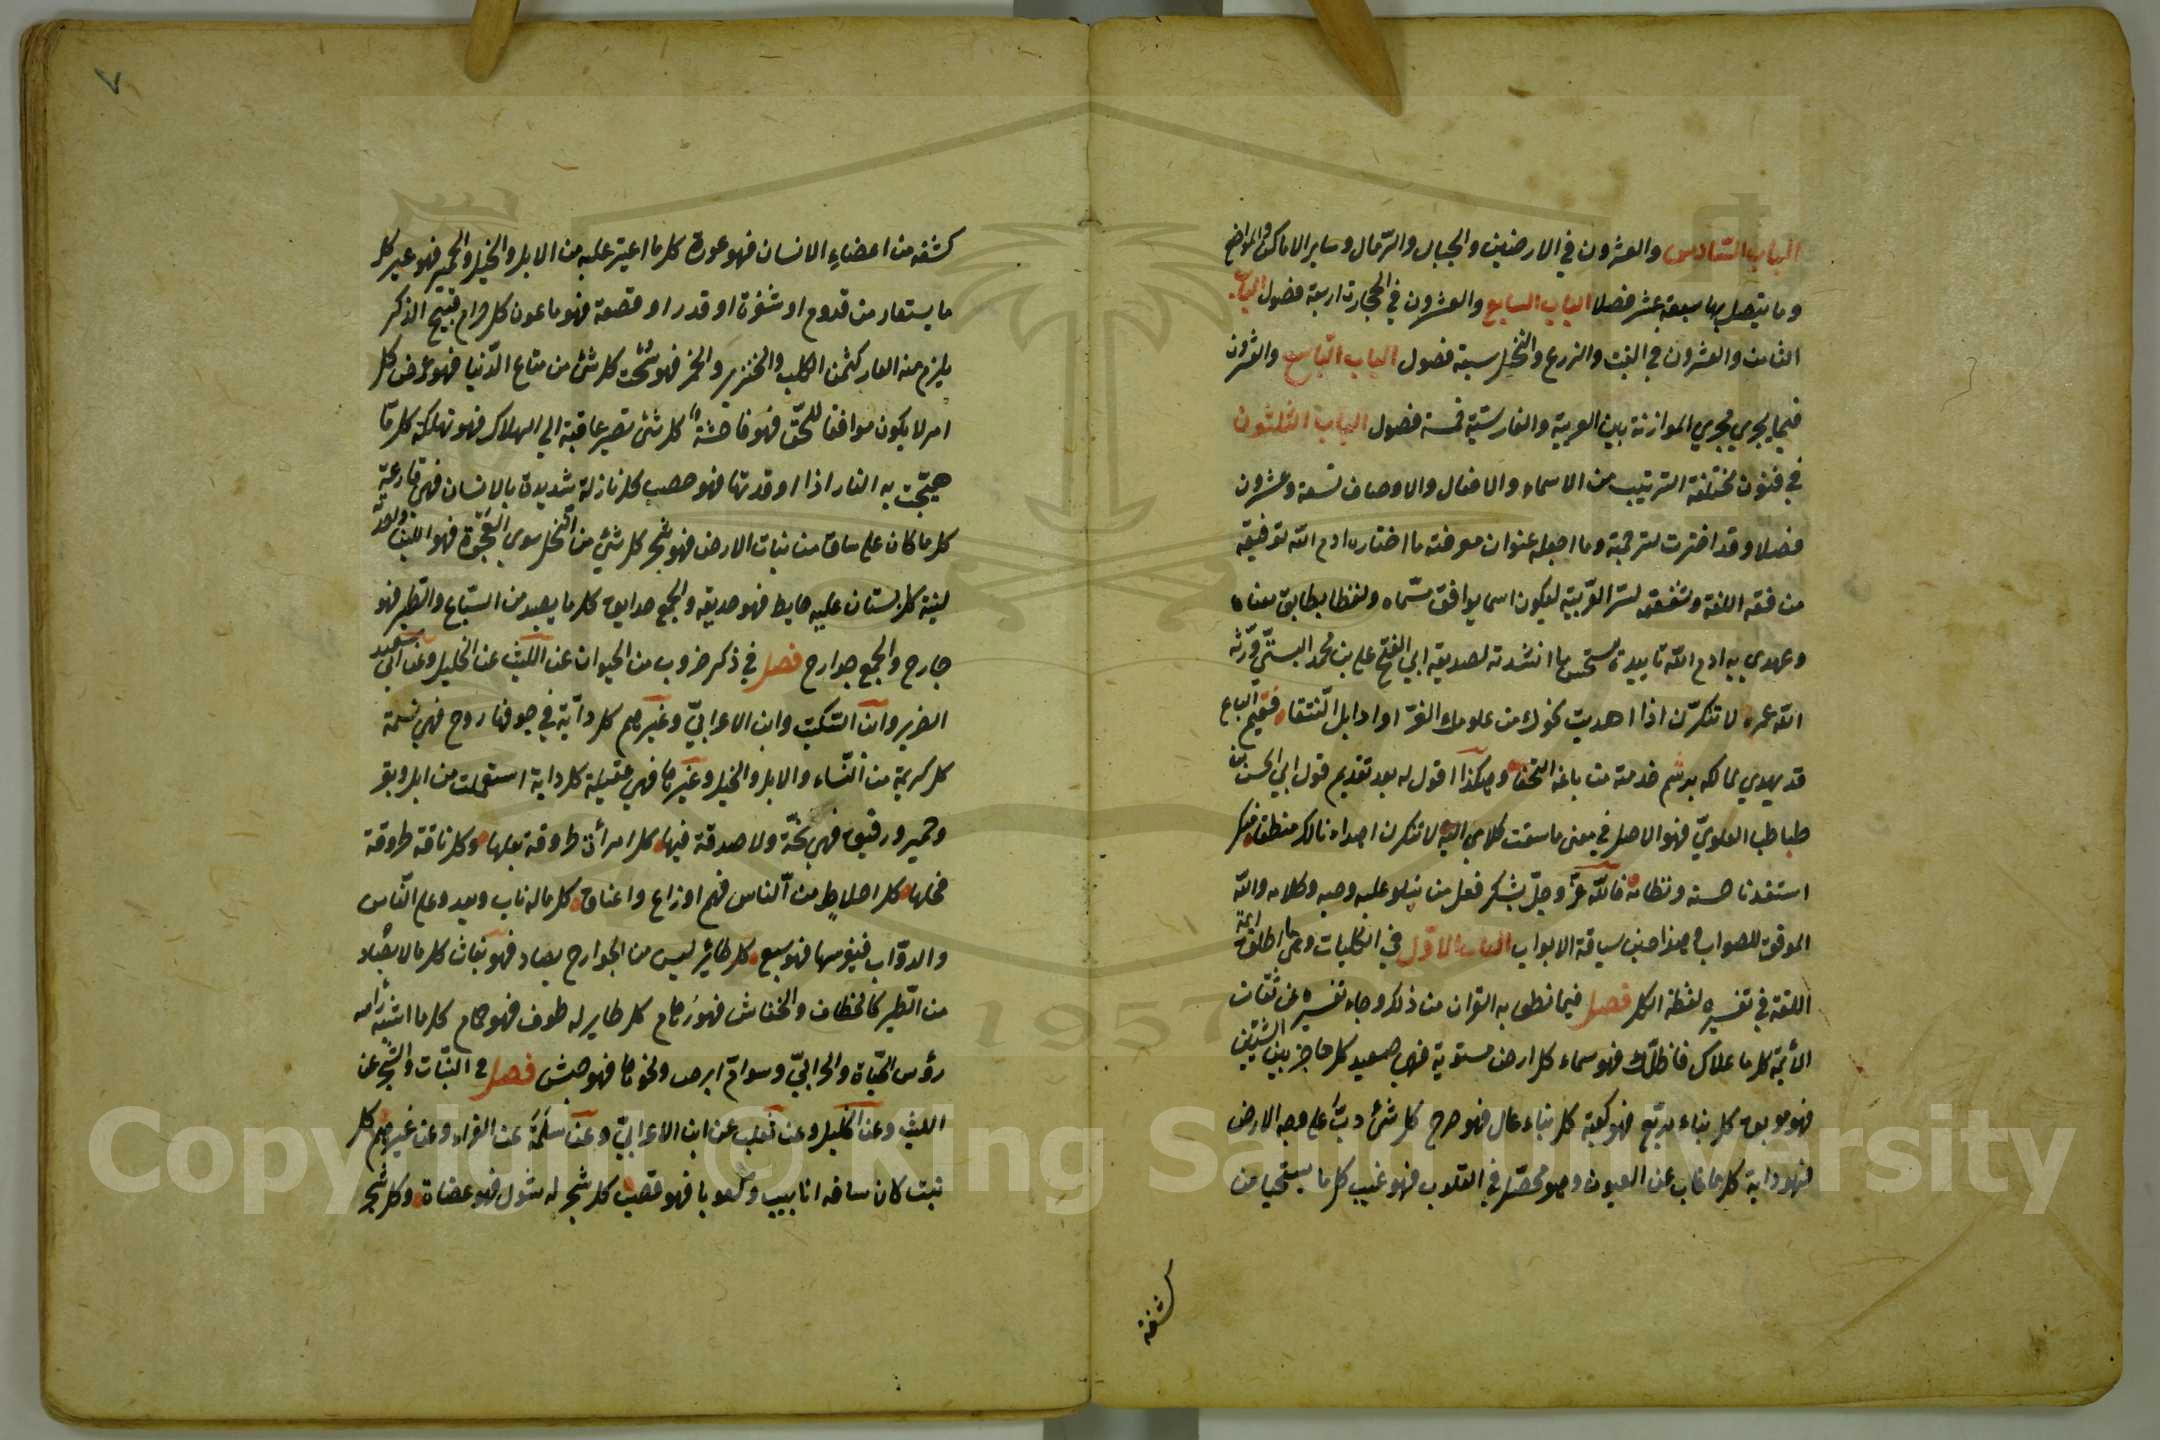 الباب السادس والعشرون في الارضين والجبال والرمال وساير الاماكن والمواضع
وما يتصل بها سبعة عشر فصلا الباب السابع والعشرون في الحجارة اربعة فصول الباب
الثامن والعشرون في النبت والزرع والنخل سبة فصول الباب التاسع والعشرون
فيما يجري مجري الموازنة بين العربية والفارسية خمسة فصول الباب الثلثون
في فنون مختلفة الترتيب من الاسماء والافعال والاوصاف تسعة وعشرون
فصلا وقد اخترت لترجمته وما اجعله عنوان معرفته ما اختاره ادام الله توفيقه
من فقه اللغة وشفعته بسر العربية ليكون اسما يوافق مسماه ولفظا يطابق معناه
وعهدي به ادام الله تاييده يستحسن ما انشدته لصديقه ابي الفتح علي بن محمد البستي ورثه
الله عمره لا تنكرن اذا اهديت نحوك من علومك الغر او ادابك النتفا فقيم الباغ
قد يهدي لمالكه برسم خدمته من باغه التحفا وهكذا اقول له بعد تقديم قول ابي الحسن بن
طباطبا العلوي فهو الاصل في معنى ما سقت كلامي اليه لا تنكرن اهداءنا لك منطقا منك
استفدنا حسنه ونظامه فالله عز وجل يشكر فعل من يتلو عليه وحيه وكلامه والله
الموفق للصواب وهذا حين سياقة الابواب الباب الاول في الكليات وهي ما اطلق ائمة
اللغة في تفسيره لفظة الكل فصل فيما نطق به القران من ذلك وجاء تفسيره عن ثقات
الائمة كل ما علاك فاظلك فهو سماء كل ارض مستوية فهي صعيد كل حاجز بين الشيئين
فهو موبق كل بناء مربع فهو كعبة كل بناء عال فهو صرح كل شئ دب على وجه الارض
فهو دابة كل ما غاب عن العيون وهو محصل في القلوب فهو غيب كل ما يستحيا من
كشفه
٧
كشفه من اعضاء الانسان فهو عورة كل ما اعتير عليه من الابل والخيل والحمير فهو عير كل
ما يستعار من قدوم او شفرة او قدر او قصعة فهو ماعون كل حرام قبيح الذكر
يلزم منه العار كثمن الكلب والخنزير والخمر فهو سحت كل شئ من متاع الدنيا فهو عرض كل
امر لا يكون موافقا للحق فهو فاحشة كل شئ تصير عاقبته الي الهلاك فهو تهلكة كل ما
هيجت به النار اذا اوقدتها فهو حصب كل نازلة شديدة بالانسان فهي قارعة
كل ما كان علي ساق من نبات الارض فهو شجر كل شئ من النخل سوى العجوة فهو اللين واحدته
لينة كل بستان عليه حايط فهو حديقه والجمع حدايق كل ما يصيد من السباع والطير فهو
جارح والجمع جوارح فصل في ذكر ضروب من الحيوان عن الليث عن الخليل وعن ابي سعيد
الضرير وابن السكيت وابن الاعرابي وغيرهم كل دابة في جوفها روح فهي نسمة
كل كريمة من النساء والابل والخيل وغيرها فهي عقيلة كل دابة استعملت من ابل وبقر
وحمير ورقيق فهي نخة ولا صدقة فيها كل امرأة طروقة بعلها وكل ناقة طروقة
فحلها كل اخلاط من الناس فهم اوزاع واعناق كل ما له ناب ويعدو علي الناس
والدواب فيفرسها فهو سبع كل طائر ليس من الجوارح يصاد فهو بغاث كل ما لا يصاد
من الطير كالخطاف والخفاش فهو رهام كل طاير له طوق فهو حمام كل ما اشبه راسه
رؤس الحياة والحرابي وسوام ابرص ونحوها فهو حنش فصل في النبات والشجر عن
الليث وعن الخليل وعن ثعلب عن ابن الاعرابي وعن سلمة عن الفراء وعن غيرهم كل
نبت كان ساقه انابيب وكعوبا فهو قصب كل شجر له شوك فهو عضاة وكل شجر